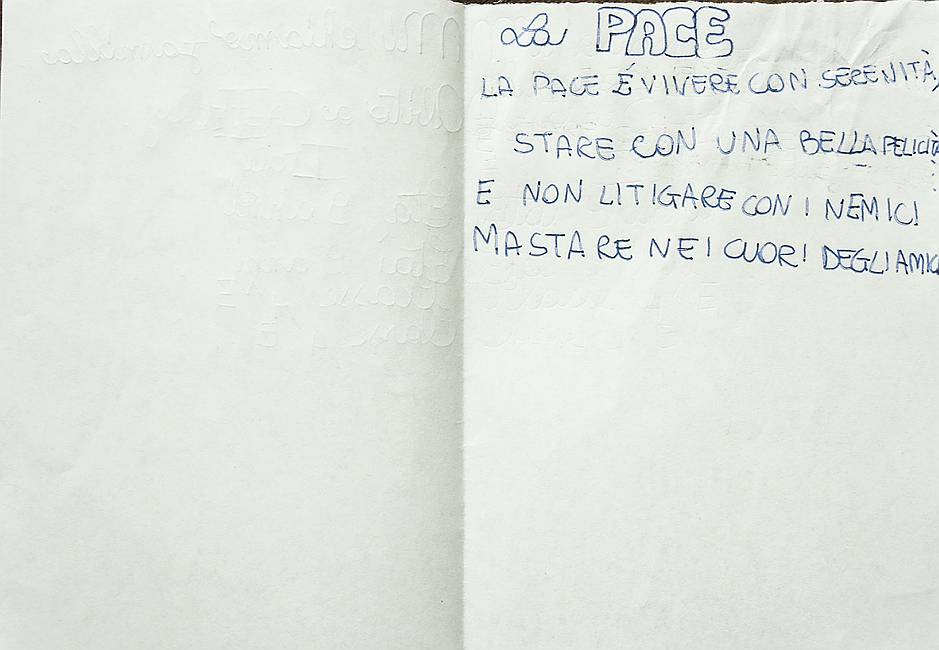 La PACE
LA PACE É VIVERE CON SERENITÀ,
STARE CON UNA BELLA FELICITÀ
E NON LITIGARE CON I NEMICI
MA STARE NEI CUORI DEGLI AMICI